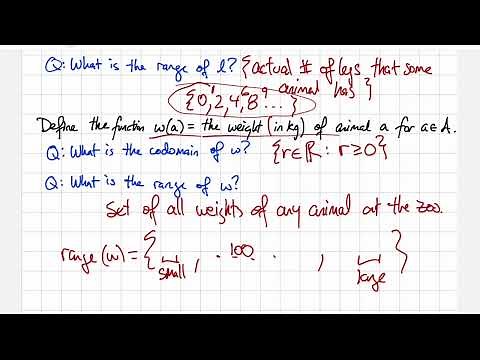 Q: What is the range of l? {actual # of legs that some animal has}
{0, 1, 2, 4, 6, 8, 9 ...}
Define the function w(a) = the weight (in kg) of animal a for a ∈ A.
Q: What is the codomain of w? {r ∈ ℝ : r ≥ 0}
Q: What is the range of w?
Set of all weights of any animal at the zoo.
range (w) = { small, . 100 . , large }